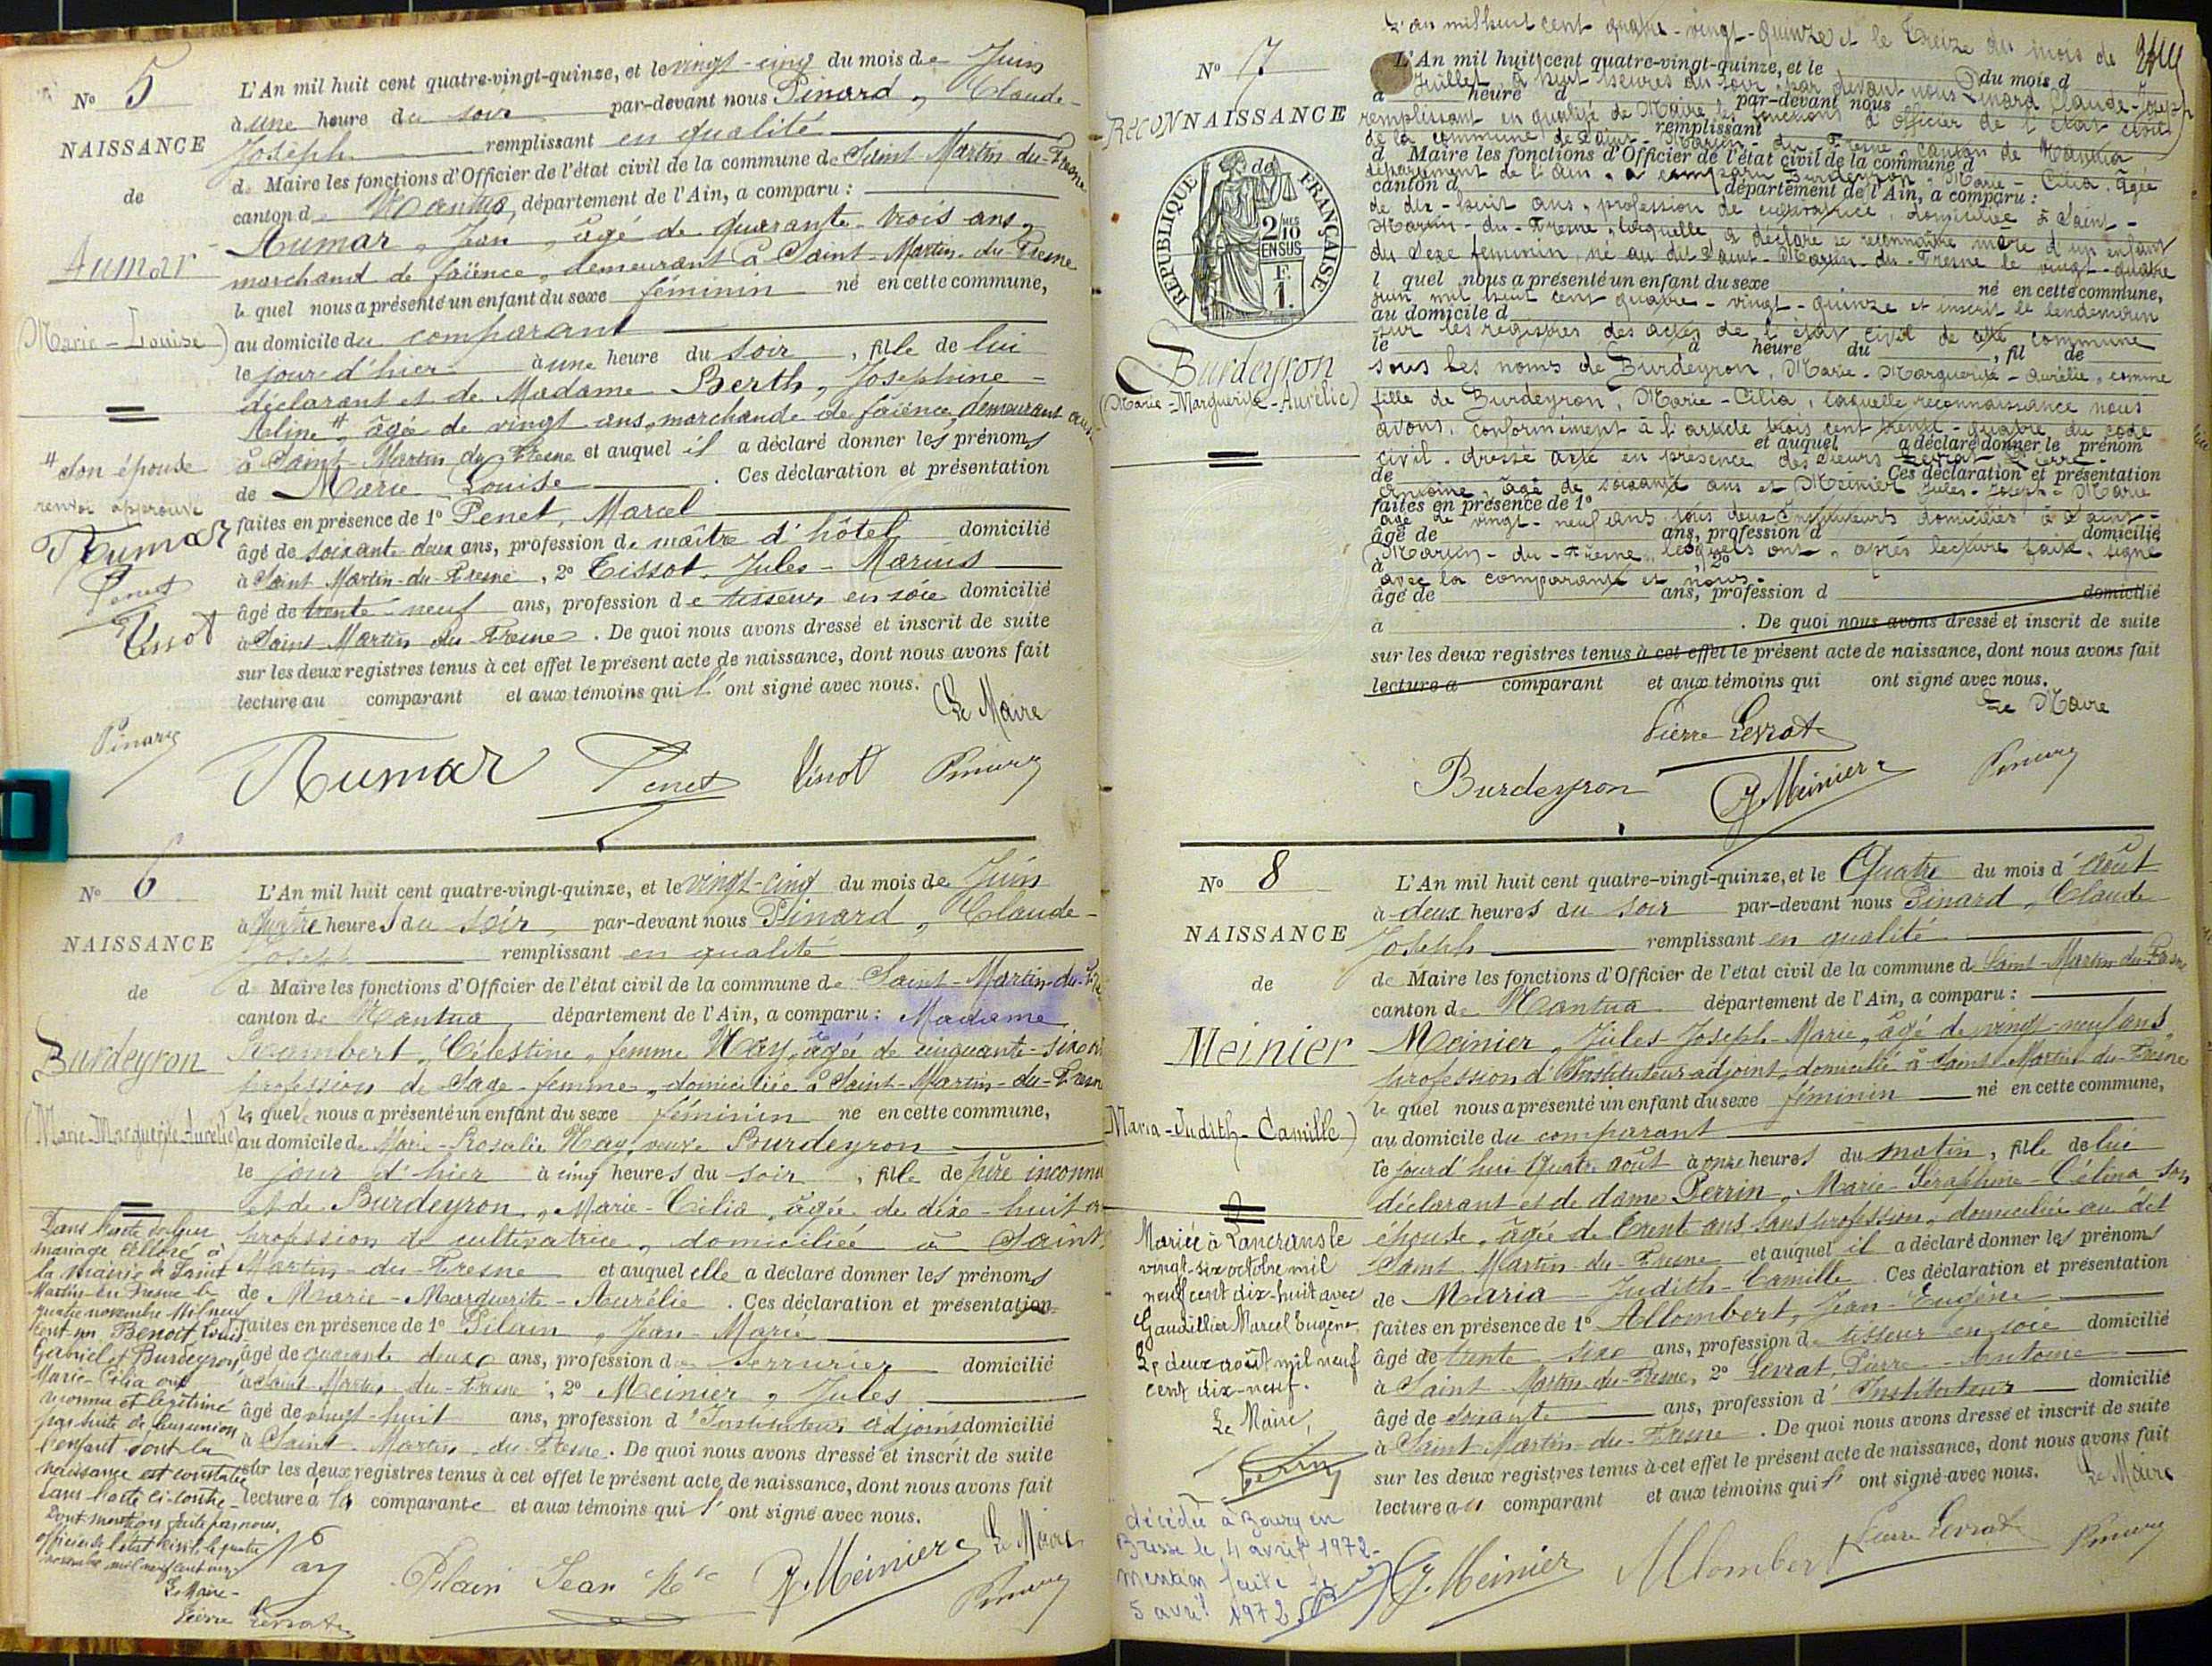 N° 5
NAISSANCE
de
Aumar
(Marie-Louise)
# son épouse
renvoi approuvé
Aumar
Penet
Tissot
Pinard
L'An mil huit cent quatre-vingt-quinze, et le vingt-cinq du mois de Juin
à une heure du soir par-devant nous Pinard, Claude-
Joseph remplissant en qualité
de Maire les fonctions d'Officier de l'état civil de la commune de Saint-Martin-du-Fresne
canton de Nantua, département de l'Ain, a comparu :
Aumar, Jean, âgé de quarante-trois ans,
marchand de faïence, demeurant à Saint-Martin-du-Fresne
lequel nous a présenté un enfant du sexe féminin né en cette commune,
au domicile du comparant
le jour d'hier à une heure du soir, fille de lui
déclarant et de Madame Berth, Joséphine-
Aline #, âgée de vingt ans, marchande de faïence, demeurant aussi
à Saint-Martin du Fresne et auquel il a déclaré donner les prénoms
de Marie Louise. Ces déclaration et présentation
faites en présence de 1° Penet, Marcel
âgé de soixante-deux ans, profession de maître d'hôtel domicilié
à Saint Martin-du-Fresne, 2° Tissot, Jules-Marius
âgé de trente-neuf ans, profession de tisseur en soie domicilié
à Saint-Martin du Fresne. De quoi nous avons dressé et inscrit de suite
sur les deux registres tenus à cet effet le présent acte de naissance, dont nous avons fait
lecture au comparant et aux témoins qui l' ont signé avec nous.
Le Maire
Aumar Penet Tissot Pinard
N° 6
NAISSANCE
de
Burdeyron
(Marie-Marguerite-Aurélie)
Dans l'acte de leur
mariage célébré à
la mairie de Saint
Martin-du-Fresne le
quatre novembre mil neuf
cent un Benoit Louis
Gabriel et Burdeyron,
Marie-Cilia ont
reconnu et légitimé
par suite de leur union
l'enfant dont la
naissance est constatée
dans l'acte ci-contre-
Dont mention faite par nous,
officier de l'état civil le quatre
novembre mil neuf cent un
Le Maire-
Pierre Levrat
L'An mil huit cent quatre-vingt-quinze, et le vingt-cinq du mois de Juin
à quatre heures du soir, par-devant nous Pinard, Claude-
Joseph remplissant en qualité
de Maire les fonctions d'Officier de l'état civil de la commune de Saint-Martin-du-Fresne
canton de Nantua département de l'Ain, a comparu : Madame
Rambert, Célestine, femme Hay, âgée de cinquante-six ans
profession de Sage-femme, domiciliée à Saint-Martin-du-Fresne
laquelle nous a présenté un enfant du sexe féminin né en cette commune,
au domicile de Marie-Rosalie Hay, veuve Burdeyron
le jour d'hier à cinq heures du soir, fille de père inconnu
et de Burdeyron, Marie-Cilia, âgée de dix-huit ans
profession de cultivatrice, domiciliée à Saint
Martin-du-Fresne et auquel elle a déclaré donner les prénoms
de Marie-Marguerite-Aurélie. Ces déclaration et présentation
faites en présence de 1° Pilain, Jean-Marie
âgé de quarante deux ans, profession de serrurier domicilié
à Saint Martin-du-Fresne, 2° Meinier, Jules
âgé de vingt-huit ans, profession d'Instituteur adjoint domicilié
à Saint-Martin-du-Fresne. De quoi nous avons dressé et inscrit de suite
sur les deux registres tenus à cet effet le présent acte de naissance, dont nous avons fait
lecture à la comparante et aux témoins qui l' ont signé avec nous.
Le Maire
Pilain Jean Mie J. Meinier Pinard
N° 7
RECONNAISSANCE
RÉPUBLIQUE FRANÇAISE
2/10 EN SUS
F. 1.
Burdeyron
(Marie-Marguerite-Aurélie)
L'an mil huit cent quatre-vingt-quinze et le treize du mois de
L'An mil huit cent quatre-vingt-quinze, et le du mois d
Juillet, à huit heures du soir, par devant nous Pinard Claude-Joseph
à heure d par-devant nous
remplissant en qualité de Maire les fonctions d'officier de l'état civil
remplissant
de la commune de Saint-Martin-du-Fresne, canton de Nantua
d Maire les fonctions d'Officier de l'état civil de la commune d
département de l'Ain, a comparu Burdeyron, Marie-Cilia, âgée
canton d département de l'Ain, a comparu :
de dix-huit ans, profession de cultivatrice, domiciliée à Saint-
Martin-du-Fresne, laquelle a déclaré se reconnaître mère d'un enfant
du sexe féminin, né au dit Saint-Martin-du-Fresne le vingt-quatre
l quel nous a présenté un enfant du sexe né en cette commune,
juin mil huit cent quatre-vingt-quinze et inscrit le lendemain
au domicile d
sur les registres des actes de l'état civil de cette commune
le à heure du , fil de
sous les noms de Burdeyron, Marie-Marguerite-Aurélie, comme
fille de Burdeyron, Marie-Cilia, laquelle reconnaissance nous
avons, conformément à l'article trois cent trente-quatre du code
et auquel a déclaré donner le prénom
civil. dressé acte en présence des sieurs Levrat Pierre-
de Ces déclaration et présentation
Antoine, âgé de soixante ans et Meinier Jules-Joseph-Marie
faites en présence de 1°
âgé de vingt-neuf ans, tous deux Instituteurs domiciliés à Saint-
âgé de ans, profession d domicilié
Martin-du-Fresne, lesquels ont, après lecture faite, signé
à , 2°
avec la comparante et nous.
âgé de ans, profession d domicilié
à . De quoi nous avons dressé et inscrit de suite
sur les deux registres tenus à cet effet le présent acte de naissance, dont nous avons fait
lecture a comparant et aux témoins qui ont signé avec nous.
Le Maire
Pierre Levrat
Burdeyron J. Meinier Pinard
N° 8
NAISSANCE
de
Meinier
(Maria-Judith-Camille)
Mariée à Lancrans le
vingt-six octobre mil
neuf cent dix-huit avec
Gaudillier Marcel Eugène.
Le deux août mil neuf
cent dix-neuf.
Le Maire,
décédée à Bourg en
Bresse le 4 avril 1972-
mention faite le
5 avril 1972
L'An mil huit cent quatre-vingt-quinze, et le Quatre du mois d'août
à deux heures du soir par-devant nous Pinard, Claude
Joseph remplissant en qualité
de Maire les fonctions d'Officier de l'état civil de la commune de Saint-Martin-du-Fresne
canton de Nantua département de l'Ain, a comparu :
Meinier, Jules Joseph-Marie, âgé de vingt-neuf ans,
profession d'Instituteur-adjoint, domicilié à Saint-Martin-du-Fresne
lequel nous a présenté un enfant du sexe féminin né en cette commune,
au domicile du comparant
le jourd'hui Quatre août à onze heures du matin, fille de lui
déclarant et de dame Perrin, Marie-Séraphine-Célina son
épouse, âgée de trent ans, sans profession, domiciliée au dit
Saint-Martin-du-Fresne et auquel il a déclaré donner les prénoms
de Maria Judith-Camille Ces déclaration et présentation
faites en présence de 1° Allombert, Jean-Eugène
âgé de trente-six ans, profession de tisseur en soie domicilié
à Saint-Martin-du-Fresne, 2° Levrat, Pierre-Antoine
âgé de soixante ans, profession d'Instituteur domicilié
à Saint-Martin-du-Fresne. De quoi nous avons dressé et inscrit de suite
sur les deux registres tenus à cet effet le présent acte de naissance, dont nous avons fait
lecture au comparant et aux témoins qui l' ont signé avec nous.
Le Maire
J. Meinier Allombert Pierre Levrat Pinard